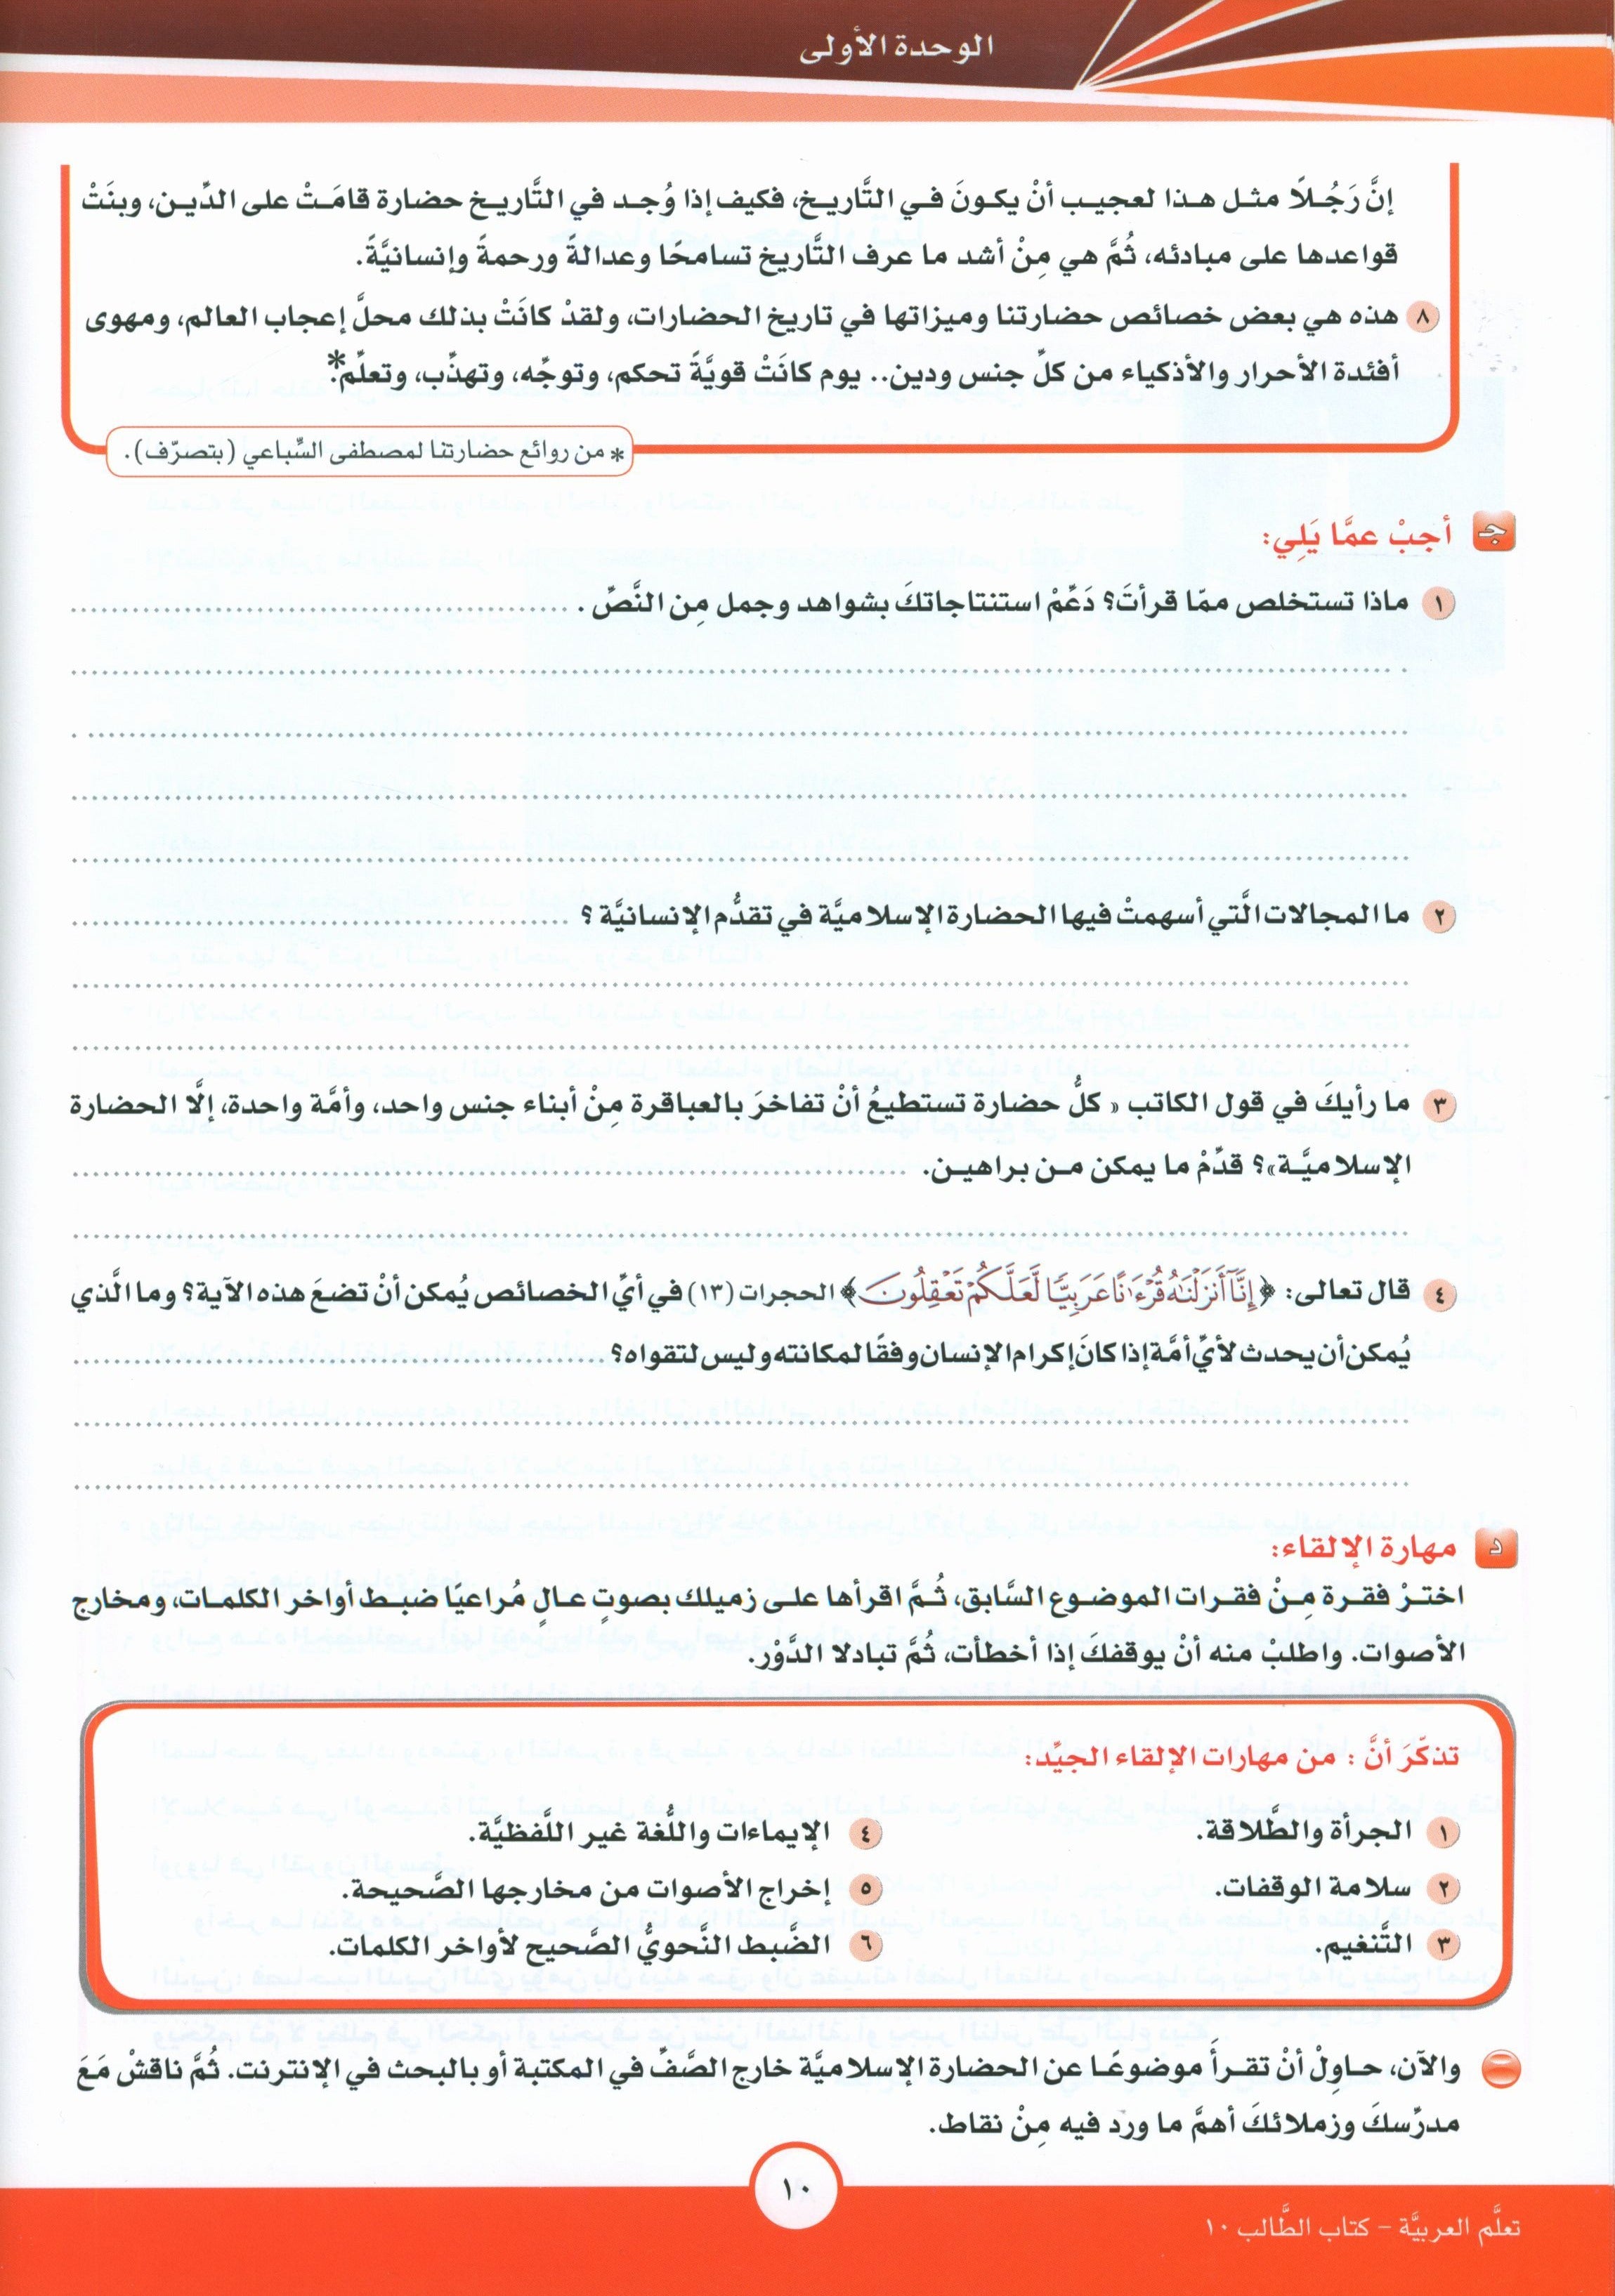 الوحدة الأولى
إنَّ رَجُلًا مثل هذا لعجيب أنْ يكونَ في التَّاريخ، فكيف إذا وُجد في التَّاريخ حضارة قامَتْ على الدِّين، وبنَتْ
قواعدها على مبادئه، ثُمَّ هي مِنْ أشد ما عرف التَّاريخ تسامحًا وعدالةً ورحمةً وإنسانيَّةً.
٨ هذه هي بعض خصائص حضارتنا وميزاتها في تاريخ الحضارات، ولقدْ كانَتْ بذلك محلَّ إعجاب العالم، ومهوى
أفئدة الأحرار والأذكياء من كلِّ جنس ودين.. يوم كانَتْ قويَّةً تحكم، وتوجِّه، وتهذِّب، وتعلِّم.*
* من روائع حضارتنا لمصطفى السِّباعي (بتصرّف).
جـ أجبْ عمَّا يَلِي:
١ ماذا تستخلص ممّا قرأتَ؟ دَعِّمْ استنتاجاتكَ بشواهد وجمل مِن النَّصِّ .
٢ ما المجالات الَّتي أسهمتْ فيها الحضارة الإسلاميَّة في تقدُّم الإنسانيَّة ؟
٣ ما رأيكَ في قول الكاتب « كلُّ حضارة تستطيعُ أنْ تفاخرَ بالعباقرة مِنْ أبناء جنس واحد، وأمَّة واحدة، إلَّا الحضارة
الإسلاميَّة»؟ قدِّمْ ما يمكن من براهين.
٤ قال تعالى: ﴿إِنَّآ أَنزَلْنَٰهُ قُرْءَٰنًا عَرَبِيًّا لَّعَلَّكُمْ تَعْقِلُونَ﴾ الحجرات (١٣) في أيِّ الخصائص يُمكن أنْ تضعَ هذه الآية؟ وما الَّذي
يُمكن أن يحدث لأيِّ أمَّة إذا كانَ إكرام الإنسان وفقًا لمكانته وليس لتقواه؟
د مهارة الإلقاء:
اخترْ فقرة مِنْ فقرات الموضوع السَّابق، ثُمَّ اقرأها على زميلك بصوتٍ عالٍ مُراعيًا ضبط أواخر الكلمات، ومخارج
الأصوات. واطلبْ منه أنْ يوقفكَ إذا أخطأت، ثُمَّ تبادلا الدَّوْر.
تذكّر أنَّ : من مهارات الإلقاء الجيِّد:
١ الجرأة والطَّلاقة.
٢ سلامة الوقفات.
٣ التَّنغيم.
٤ الإيماءات واللُّغة غير اللَّفظيَّة.
٥ إخراج الأصوات من مخارجها الصَّحيحة.
٦ الضَّبط النَّحويُّ الصَّحيح لأواخر الكلمات.
والآن، حاولْ أنْ تقرأَ موضوعًا عن الحضارة الإسلاميَّة خارج الصَّفِّ في المكتبة أو بالبحث في الإنترنت. ثُمَّ ناقشْ مَعَ
مدرِّسكَ وزملائكَ أهمَّ ما ورد فيه مِنْ نقاط.
١٠
تعلَّم العربيَّة – كتاب الطَّالب ١٠